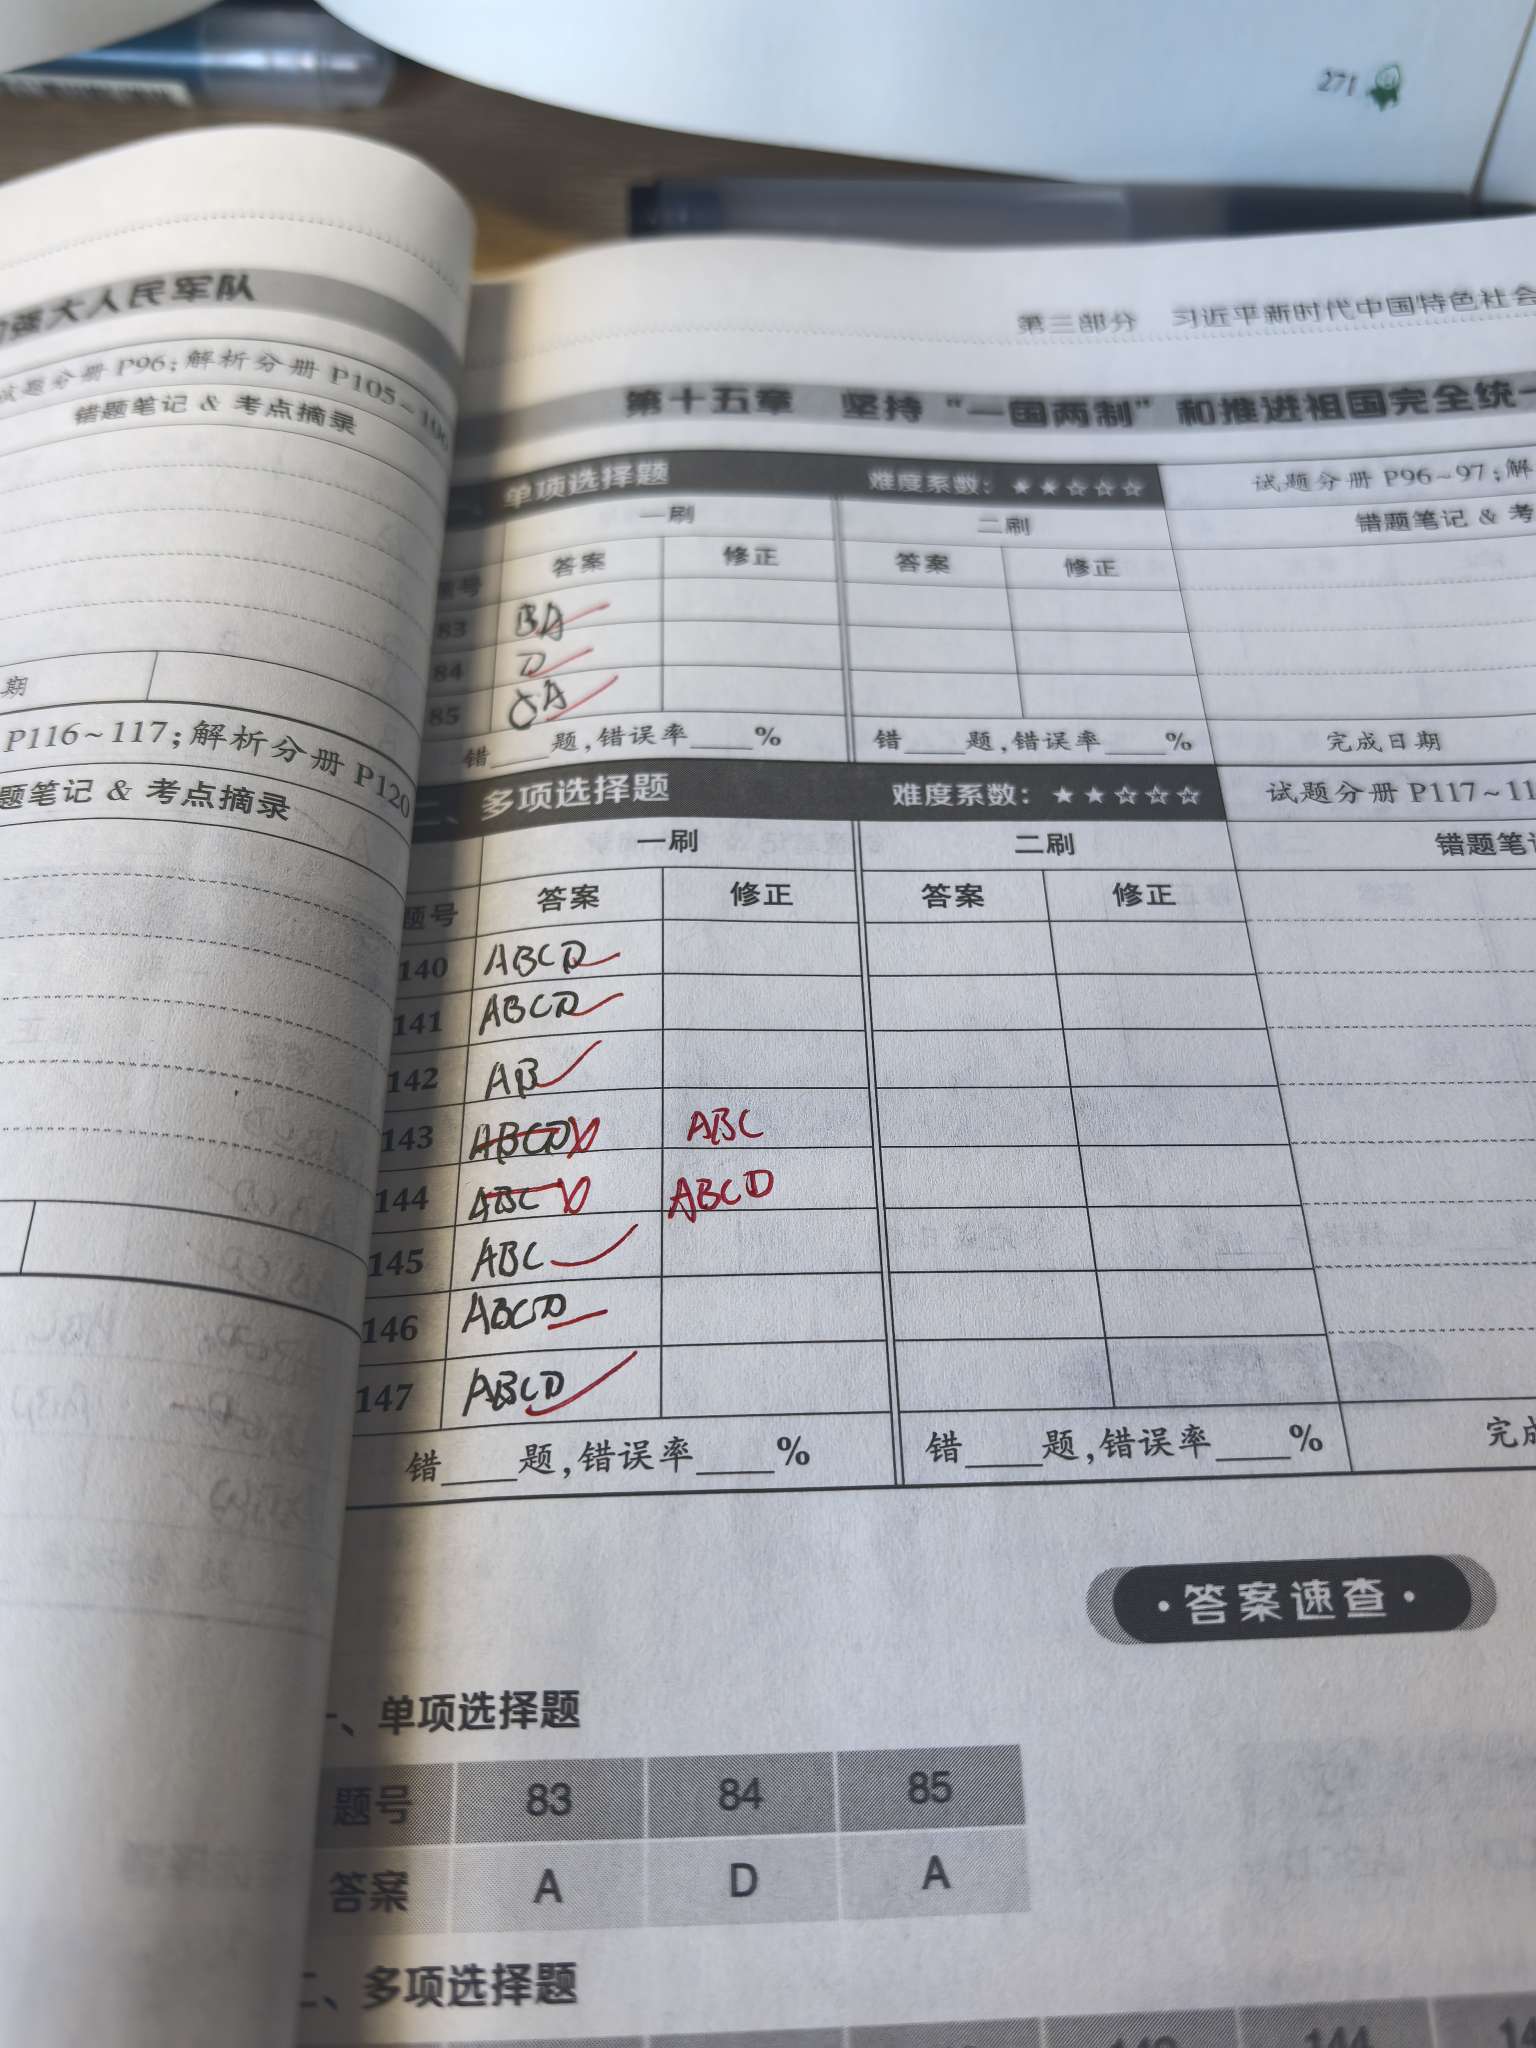 271
强大人民军队
试题分册 P96;解析分册 P105~106
错题笔记 & 考点摘录
期
P116~117;解析分册 P120
题笔记 & 考点摘录
第三部分 习近平新时代中国特色社会
第十五章 坚持“一国两制”和推进祖国完全统一
一、单项选择题 难度系数:★★☆☆☆ 试题分册 P96~97;解
一刷 二刷 错题笔记 & 考
题号 答案 修正 答案 修正
83 BA
84 D
85 CA
错____题,错误率____% 错____题,错误率____% 完成日期
二、多项选择题 难度系数:★★☆☆☆ 试题分册 P117~11
一刷 二刷 错题笔记
题号 答案 修正 答案 修正
140 ABCD
141 ABCD
142 AB
143 ABCD ABC
144 ABC ABCD
145 ABC
146 ABCD
147 ABCD
错____题,错误率____% 错____题,错误率____% 完成
·答案速查·
一、单项选择题
题号 83 84 85
答案 A D A
二、多项选择题
144